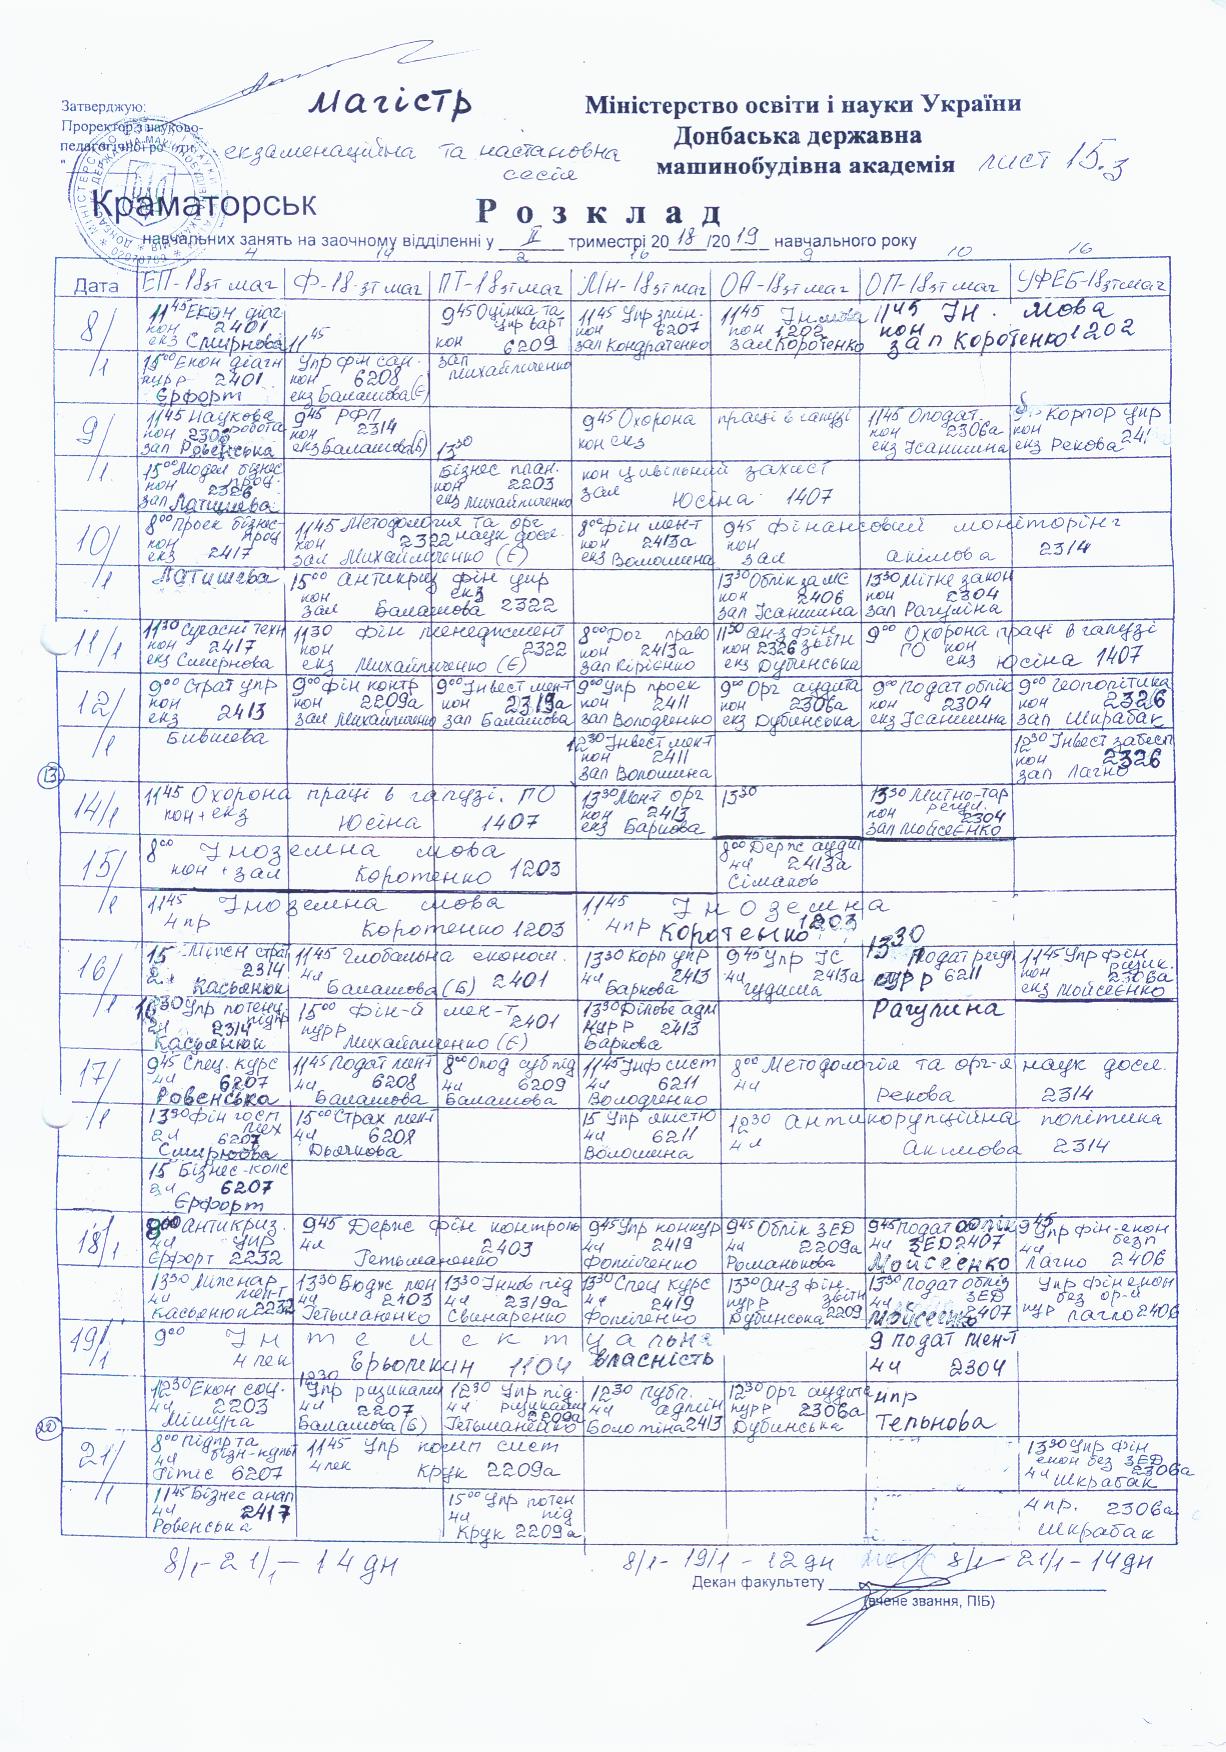 Затверджую:
Проректор з науково-
педагогічної роботи
магістр
Міністерство освіти і науки України
Донбаська державна
машинобудівна академія
лист 15.з
екзаменаційна та настановна
сесія
Краматорськ
Розклад
навчальних занять на заочному відділенні у II триместрі 2018/2019 навчального року
4 14 2 16 9 10 16
Дата ЕП-18зт маг Ф-18-зт маг ПТ-18зт маг МН-18зт маг ОА-18зт маг ОП-18зт маг УФЕБ-18зт маг
8/1
11 45 Екон діаг
кон 2401
екз Смирнова
11 45
Упр фін сан.
кон 6208
екз Балашова (Є)
9 45 Оцінка та
упр варт
кон 6209
зал
Михайличенко
11 45 Упр змін.
кон 6207
зал Кондратенко
11 45 Ін мова
кон 1202
зал Коротенко
11 45 Ін. мова
кон
зал Коротенко 1202
15 00 Екон діагн
курр 2401
Єрфорт
9/1
11 45 Наукова
робота
кон 2306
зал Ровенська
9 45 РФП
кон 2314
екз Балашова(Б)
13 30
Бізнес план.
кон 2203
екз Михайличенко
9 45 Охорона праці в галузі
кон екз
11 45 Оподат.
кон 2306а
екз Ісаншина
Корпор упр
кон
екз Рекова
15 00 Модел бізнес
проц.
кон 2326
зал Латишева
кон цивільний захист
зал Юсіна 1407
10/1
8 00 Проек бізнес-
проц
кон
екз 2417
Латишева
11 45 Методологія та орг
кон 2322 наук досл.
зал Михайличенко (Є)
8 00 Фін мен-т
кон 2413а
екз Волошина
9 45 Фінансовий моніторінг
кон
зал Акімова 2314
15 00 антикриз фін упр
кон екз
зал Балашова 2322
13 30 Облік за МС
кон 2406
зал Ісаншина
13 30 Митне закон
кон 2304
зал Рагуліна
11/1
11 30 Сучасні техн
кон 2417
екз Смирнова
11 30 фін менеджмент
кон 2322
екз Михайличенко (Є)
8 00 Дог право
кон 2413а
зал Кірієнко
11 30 Ан-з фін
кон 2326 звітн
екз Дубинська
9 00 Охорона праці в галузі
ГО кон
екз Юсіна 1407
12/1
9 00 Страт упр
кон
екз 2413
Бившева
9 00 Фін контр
кон 2209а
зал Михайличенко
9 00 Інвест мен-т
кон 2319а
зал Балашова
9 00 Упр проек
кон 2411
зал Володченко
9 00 Орг аудита
кон 2306а
екз Дубинська
9 00 Подат облік
кон 2304
екз Ісаншина
9 00 Геополітика
кон 2326
зал Шкрабак
12 30 Інвест мен-т
кон 2411
зал Волошина
12 30 Інвест забесп
кон 2326
зал Лагно
13
14/1
11 45 Охорона праці в галузі. ГО
кон + екз Юсіна 1407
13 30 Мен-т орг
кон 2413
екз Баркова
13 30
13 30 Митно-тар
регул.
кон 2304
зал Мойсеєнко
15/1
8 00 Іноземна мова
кон + зал Коротенко 1203
8 00 Держ аудит
4ч 2413а
Сімаков
11 45 Іноземна мова
4 пр Коротенко 1203
11 45 Іноземна
4 пр Коротенко 1203
16/1
15 Міжн страт
2314
Касьянюк
11 45 Глобальна економ.
4ч Балашова (Б) 2401
13 30 Корп упр
4ч 2413
Баркова
9 45 Упр ІС
4ч 2413а
Гудима
13 30
Податрегул
курр 6211
Рагулина
11 45 Упр фін
ризик.
кон 2306а
екз Мойсеєнко
16 30 Упр потенц
підпр
2ч 2314
Касьянюк
15 00 Фін-й мен-т
курр 2401
Михайличенко (Є)
13 30 Ділове адм
курр 2413
Баркова
17/1
9 45 Спец. курс
4ч 6207
Ровенська
11 45 Подат мен-т
4ч 6208
Балашова
8 00 Опод суб під
4ч 6209
Балашова
11 45 Інф сист
4ч 6211
Володченко
8 00 Методологія та орг-я наук досл.
4ч Рекова 2314
13 30 Фін госп
мех
2л 6207
Смирнова
15 00 Страх мен-т
4ч 6208
Дьячкова
15 Упр якістю
4ч 6211
Волошина
12 30 Антикорупційна політика
4л Акімова 2314
15 Бізнес-колс
2ч 6207
Єрфорт
18/1
8 00 Антикриз.
4ч упр
Єрфорт 2232
9 45 Держ фін контроль
4ч 2403
Гетьманенко
9 45 Упр конкур
4ч 2419
Фоміченко
9 45 Облік ЗЕД
4ч 2209а
Романькова
9 45 Подат облік
4ч ЗЕД 2407
Мойсеєнко
9 45
Упр фін-екон
4ч безп
Лагно 2406
13 30 Міжнар
4ч мен-т
Касьянюк 2232
13 30 Бюдж мен
4ч 2403
Гетьманенко
13 30 Іннов під
4ч 2319а
Свинаренко
13 30 Спец курс
4ч 2419
Фоміченко
13 30 Ан-з фін.
курр звітн
Дубинська 2209
13 30 Подат облід
4ч ЗЕД
2407
Упр фін екон
без ор-й
курр Лагно 2406
19/1
9 00 Інтелектуальна
4 лек Ерьомкин 1104 власність
9 подат мен-т
4ч 2304
12 30 Екон соц.
4ч 2203
Мішура
12 30
Упр ризиками
4ч 2207
Балашова (Б)
12 30 Упр під.
4ч ризиками
2209а
Гетьманенко
12 30 Публ.
4ч адмін
Болотіна 2413
12 30 Орг аудита
курр 2306а
Дубинська
4пр
Тельнова
20
21/1
8 00 Підпр та
4ч бізн-культ
Гітіс 6207
11 45 Упр комп сист
4 лек Крук 2209а
13 30 Упр фін
екон без ЗЕД
4ч 2306а
Шкрабак
11 45 Бізнес анал
4ч 2417
Ровенська
15 00 Упр потен
4ч під
Крук 2209а
4 пр. 2306а
Шкрабак
8/1-21/1 – 14 дн
8/1 - 19/1 - 12 дн
8/1 - 21/1 - 14 дн
Декан факультету
(вчене звання, ПІБ)